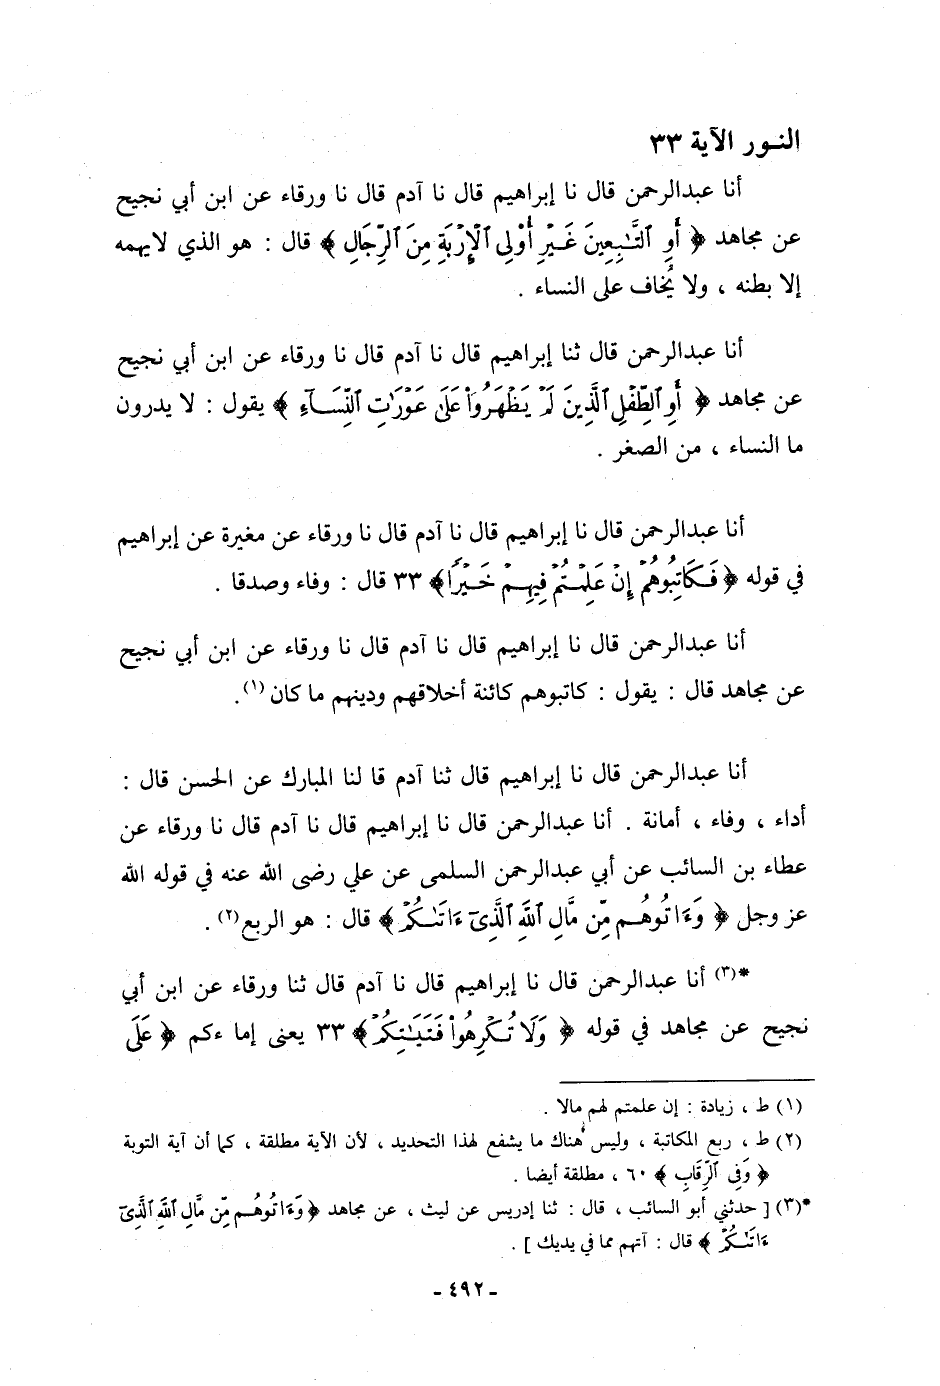 النـور الآية ٣٣
أنا عبدالرحمن قال نا إبراهيم قال نا آدم قال نا ورقاء عن ابن أبي نجيح
عن مجاهد ﴿ أَوِ ٱلتَّٰبِعِينَ غَيْرِ أُوْلِي ٱلْإِرْبَةِ مِنَ ٱلرِّجَالِ ﴾ قال : هو الذي لايهمه
إلا بطنه ، ولا يُخاف على النساء .
أنا عبدالرحمن قال ثنا إبراهيم قال نا آدم قال نا ورقاء عن ابن أبي نجيح
عن مجاهد ﴿ أَوِ ٱلطِّفْلِ ٱلَّذِينَ لَمْ يَظْهَرُواْ عَلَىٰ عَوْرَٰتِ ٱلنِّسَآءِ ﴾ يقول : لا يدرون
ما النساء ، من الصغر .
أنا عبدالرحمن قال نا إبراهيم قال نا آدم قال نا ورقاء عن مغيرة عن إبراهيم
في قوله ﴿ فَكَاتِبُوهُمْ إِنْ عَلِمْتُمْ فِيهِمْ خَيْرًا﴾ ٣٣ قال : وفاء وصدقا .
أنا عبدالرحمن قال نا إبراهيم قال نا آدم قال نا ورقاء عن ابن أبي نجيح
عن مجاهد قال : يقول : كاتبوهم كائنة أخلاقهم ودينهم ما كان (١).
أنا عبدالرحمن قال نا إبراهيم قال ثنا آدم قا لنا المبارك عن الحسن قال :
أداء ، وفاء ، أمانة . أنا عبدالرحمن قال نا إبراهيم قال نا آدم قال نا ورقاء عن
عطاء بن السائب عن أبي عبدالرحمن السلمى عن علي رضى الله عنه في قوله الله
عز وجل ﴿ وَءَاتُوهُم مِّن مَّالِ ٱللَّهِ ٱلَّذِيٓ ءَاتَىٰكُمْ﴾ قال : هو الربع(٢) .
*(٣) أنا عبدالرحمن قال نا إبراهيم قال نا آدم قال ثنا ورقاء عن ابن أبي
نجيح عن مجاهد في قوله ﴿ وَلَا تُكْرِهُواْ فَتَيَٰتِكُمْ﴾ ٣٣ يعنى إما ءكم ﴿ عَلَى
(١) ط ، زيادة : إن علمتم لهم مالا .
(٢) ط ، ربع المكاتبة ، وليس هناك ما يشفع لهذا التحديد ، لأن الآية مطلقة ، كما أن آية التوبة
﴿ وَفِي ٱلرِّقَابِ ﴾ ٦٠ ، مطلقة أيضا .
*(٣) [ حدثني أبو السائب ، قال : ثنا إدريس عن ليث ، عن مجاهد ﴿ وَءَاتُوهُم مِّن مَّالِ ٱللَّهِ ٱلَّذِيٓ
ءَاتَىٰكُمْ ﴾ قال : آتهم مما في يديك ] .
- ٤٩٢ -